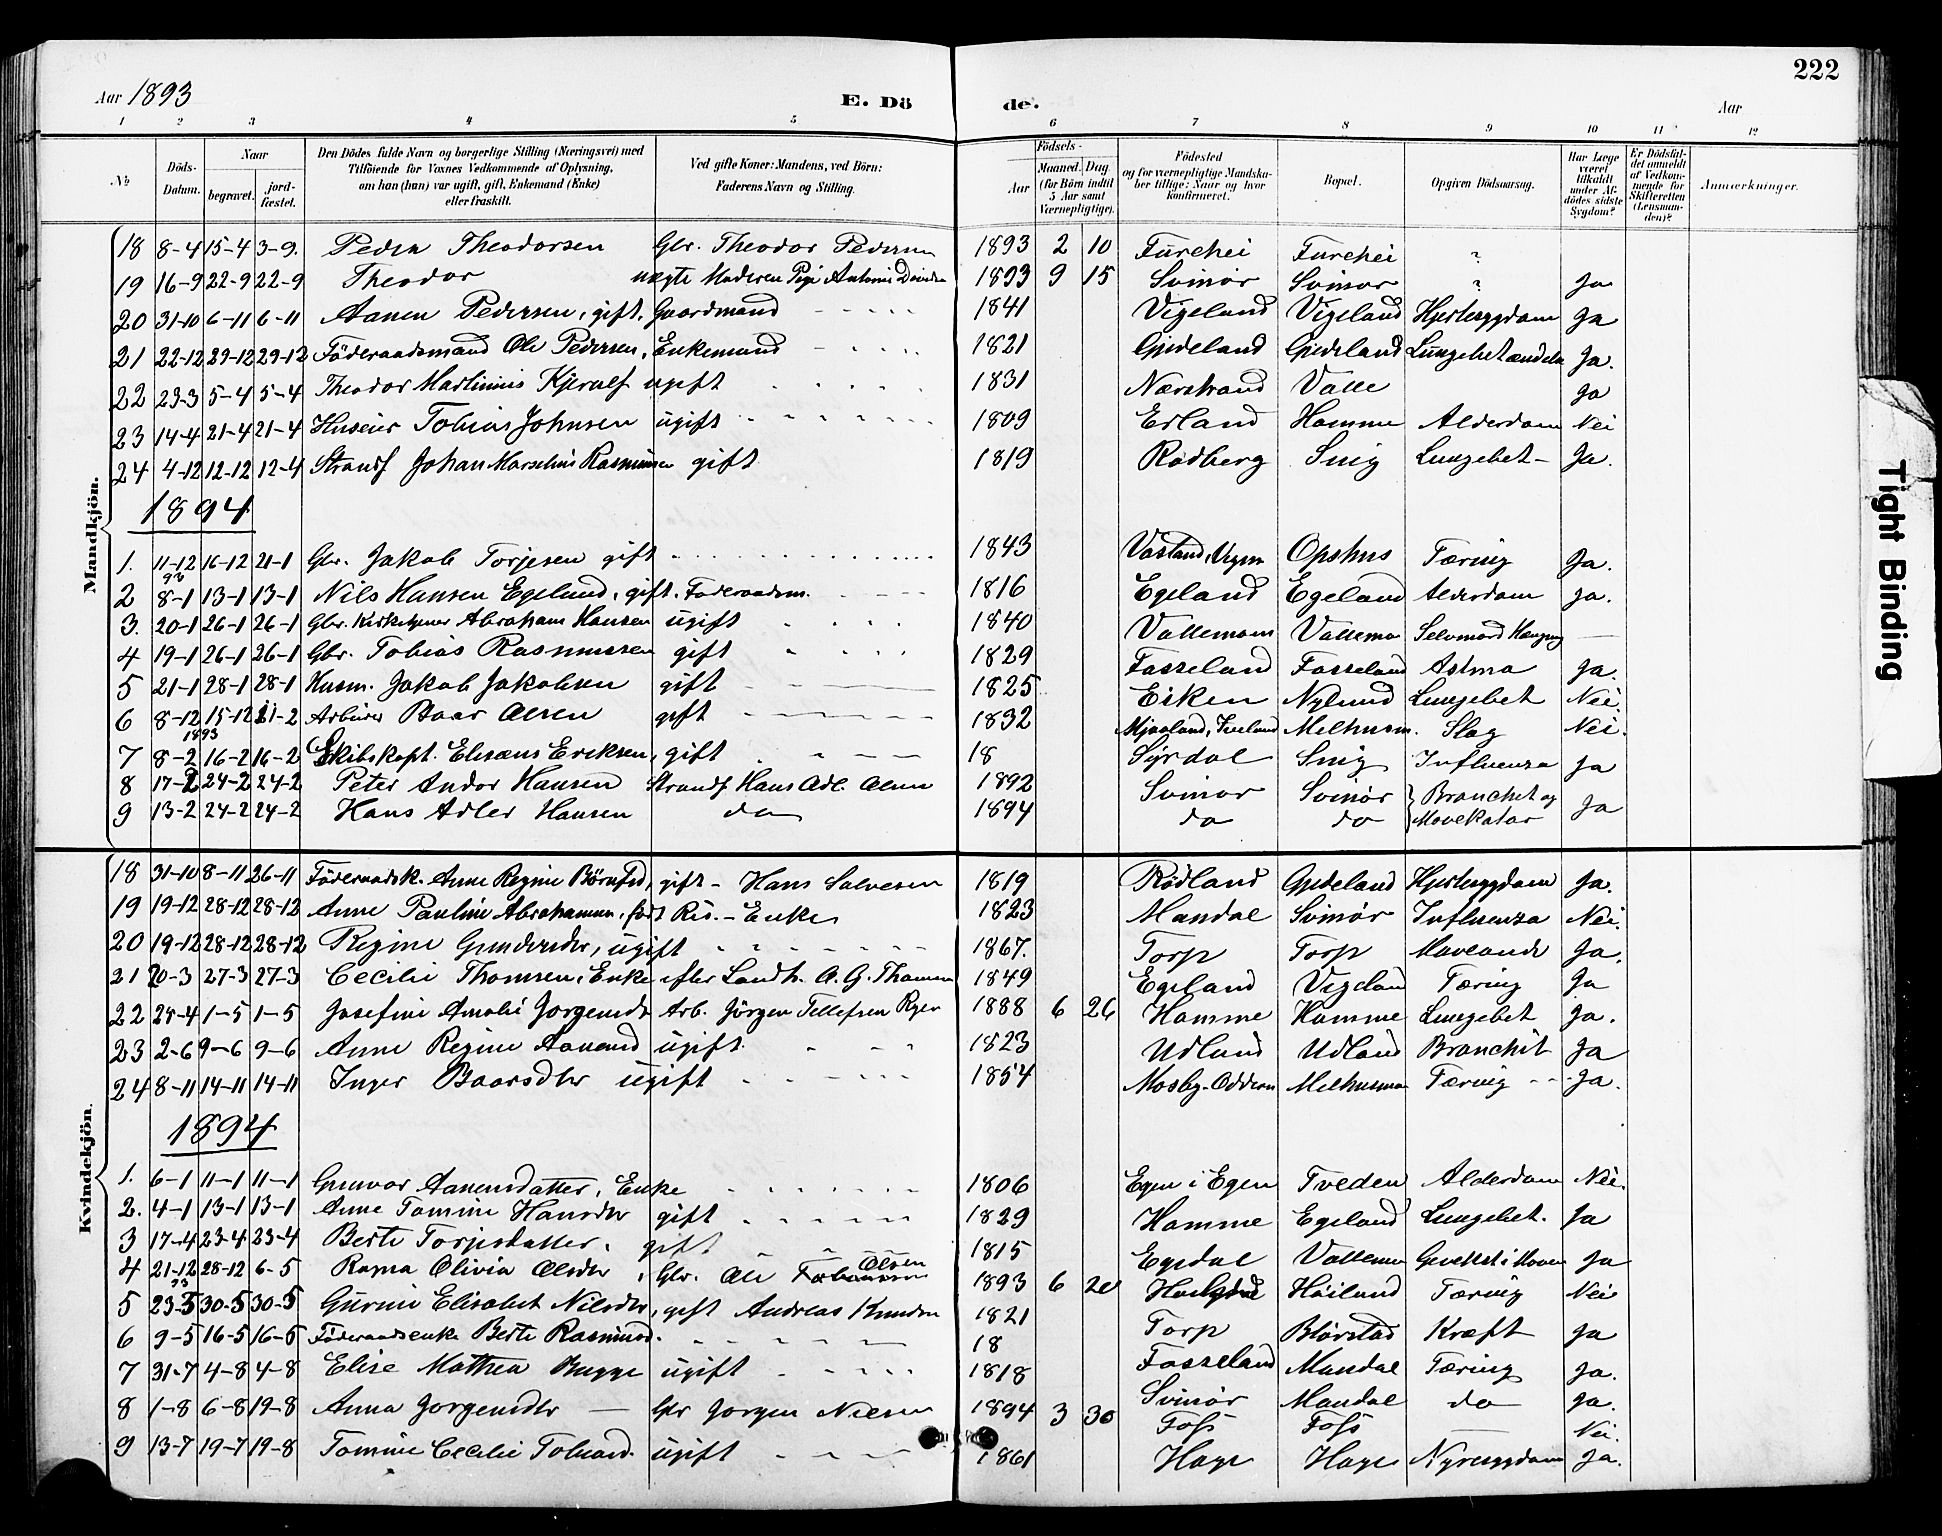 222
Aar 1893 E. Dö de. Aar
1 2 3 4 5 6 7 8 9 10 11 12
No
Döds-Datum.
Naar
begravet.
jord-fæstet.
Den Dödes fulde Navn og borgerlige Stilling (Næringsvei) med
Tilföiende for Voxnes Vedkommende af Oplysning,
om han (hun) var ugift, gift, Enkemand (Enke)
eller fraskilt.
Ved gifte Koner: Mandens, ved Börn:
Faderens Navn og Stilling.
Födsels-
Aar
Maaned. Dag
(for Börn indtil
5 Aar samt
Værnepligtige).
Födested
og for værnepligtige Mandska-
ber tillige: Naar og hvor
konfirmeret.
Bopæl.
Opgiven Dödsaarsag.
Har Læge
været
tilkaldt
under Af-
dödes sidste
Sygdom?
Er Dödsfal-
det anmeldt
af Vedkom-
mende for
Skifteretten
(Lensman-
den)?
Anmærkninger.
Mandkjön.
18 8-4 15-4 3-9. Peder Theodorsen Gbr. Theodor Pedersen 1893 2 10 Furehei Furehei "
19 16-9 22-9 22-9 Theodor uægte Moderen Antonie 1893 9 15 Svinør Svinør " Ja
20 31-10 6-11 6-11 Aanen Pedersen, gift, Gaardmand 1841 Vigeland Vigeland Hjertesygdom Ja
21 22-12 29-12 29-12 Föderaadsmand Ole Pedersen, Enkemand 1821 Gjedeland Gjedeland Lungebetændelse Ja.
22 23-3 5-4 5-4 Theodor Martinius Kjerulf ugift 1831 Nærstrand Valle Ja
23 14-4 21-4 21-4 Huseier Tobias Johnsen ugift 1809 Erland Homme Alderdom Nei
24 4-12 12-12 12-4 Strandf Johan Marselius Rasmussen gift 1819 Rødberg Snig Lungebet- Ja.
1894
1. 11-12 93 16-12 21-1 Gbr. Jakob Torjesen gift 1843 Opshus Tæring Ja.
2 8-1 13-1 13-1 Nils Hansen Egeland, gift. Föderaadsm. 1816 Egeland Egeland Alderdom Ja.
3. 20-1 26-1 26-1 Gbr. Kirketjener Abraham Hansen ugift 1840 Vallemoen Vallemo Selvmord Hængning
4 19-1 26-1 26-1 Gbr. Tobias Rasmussen gift 1829 Fasseland Fasseland Astma Ja.
5 21-1 28-1 28-1 Husm. Jakob Jakobsen gift 1825 Eiken Nylund Lungebet Nei.
6 8-12 1893 15-12 21-2 Arbeider Baar Olsen gift 1832 Melhusm. Slag Nei.
7 8-2 16-2 16-2 Skibskapt. Elisæus Eriksen, gift 18 Syrdal Snig Influenza Ja
8 17-2 24-2 24-2 Peter Andor Hansen Strandf Hans Adl. Olsen 1892 Svinør Svinør Bronchit og Ja
9 13-2 24-2 24-2 Hans Adler Hansen do 1894 do do Mavekatar
Kvindekjön.
18 31-10 8-11 26-11 Föderaadsk. Anne Regine gift - Hans Salvesen 1819 Rødland Gjedeland Hjertesygdom Ja.
19 19-12 28-12 28-12 Anne Pauline Abrahamsen, født Ris. - Enke 1823 Mandal Svinør Influenza Nei.
20 19-12 28-12 28-12 Regine Gundersdtr, ugift 1867. Torp Torp Maveonde Ja.
21 20-3 27-3 27-3 Cecilie Thomsen, Enke efter Landh. A. G. Thomsen 1849 Egeland Vigeland Tæring Ja
22 24-4 1-5 1-5 Josefine Amalie Jorgensdtr Arb. Jörgen Tellefsen 1888 6 26 Homme Homme Lungebet Ja.
23 2-6 9-6 9-6 Anne Regine Aanensd ugift 1823 Udland Udland Bronchit Ja
24 8-11 14-11 14-11 Inger Baarsdtr ugift 1854 Mosby - Oddern Melhusmo Tæring Ja.
1894
1. 6-1 11-1 11-1 Gunvor Aanensdatter, Enke 1806 Egen i Egen Tveden Alderdom Nei.
2. 4-1 13-1 13-1 Anne Tomine Hansdtr gift 1829 Homme Egeland Lungebet. Ja
3 17-4 23-4 23-4 Berte Torjesdatter, gift 1815 Egedal Vallemo Ja
4 21-12 93 28-12 6-5 Olivia Olsdtr, Gbr. Ole Olsen 1893 6 20 Höiland Tæring Nei
5 23-5 30-5 30-5 Gurine Elisabet Nilsdtr, gift Andreas Knudsen 1821
6 9-5 16-5 16-5 Föderaadsenke Berte Rasmusd. 18 Torp Blörstad Kræft Ja
7 31-7 4-8 4-8 Elise Mathea Bugge ugift 1818 Fasseland Mandal Tæring Ja.
8 1-8 6-8 19-8 Anna Jorgensdtr — Gbr Jorgen Nielsen 1894 3 30 Svinör Mandal do Ja.
Foss Foss Nei.
9 13-7 19-7 19-8 Tomine Cecilie Tobiasd. ugift 1861 Haye Haye Nyresygdom Ja.
Tight Binding